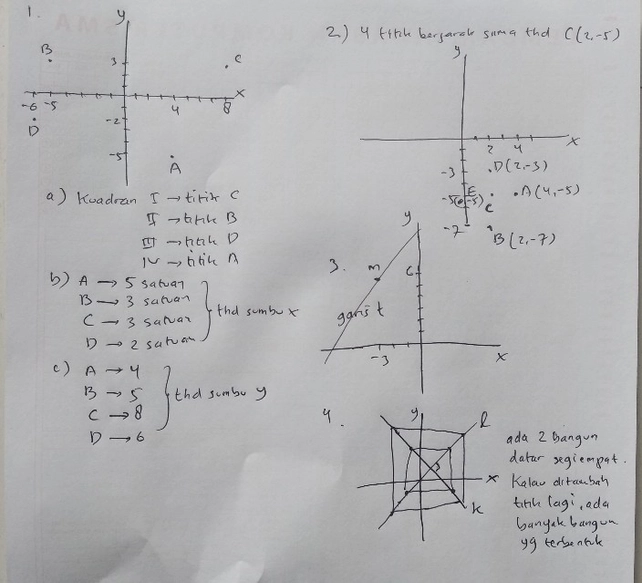 1.
y
B
3
C
x
-6 -5
4
8
D
-2
-5
A
a) Kuadran I → titik C
II → titik B
III → titik D
IV → titik A
b) A → 5 satuan
B → 3 satuan
C → 3 satuan
D → 2 satuan
thd sumbu x
c) A → 4
B → 5
C → 8
D → 6
thd sumbu y
2) 4 titik berjarak sama thd C(2,-5)
y
x
2 4
-3
D(2,-3)
E
-5
A(4,-5)
C
-7
B(2,-7)
3.
y
m
garis t
-3
x
4.
y
l
x
k
ada 2 bangun
datar segiempat.
Kalau ditambah
titik lagi, ada
banyak bangun
yg terbentuk